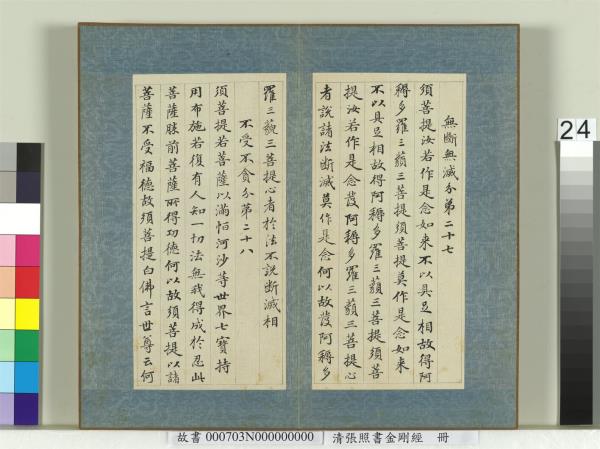 無斷無滅分第二十七
須菩提汝若作是念如來不以具足相故得阿
耨多羅三藐三菩提須菩提莫作是念如來
不以具足相故得阿耨多羅三藐三菩提須菩
提汝若作是念發阿耨多羅三藐三菩提心
者說諸法斷滅莫作是念何以故發阿耨多
羅三藐三菩提心者於法不說斷滅相
不受不貪分第二十八
須菩提若菩薩以滿恒河沙等世界七寶持
用布施若復有人知一切法無我得成於忍此
菩薩勝前菩薩所得功德何以故須菩提以諸
菩薩不受福德故須菩提白佛言世尊云何
24
故書 000703N000000000 清張照書金剛經 冊